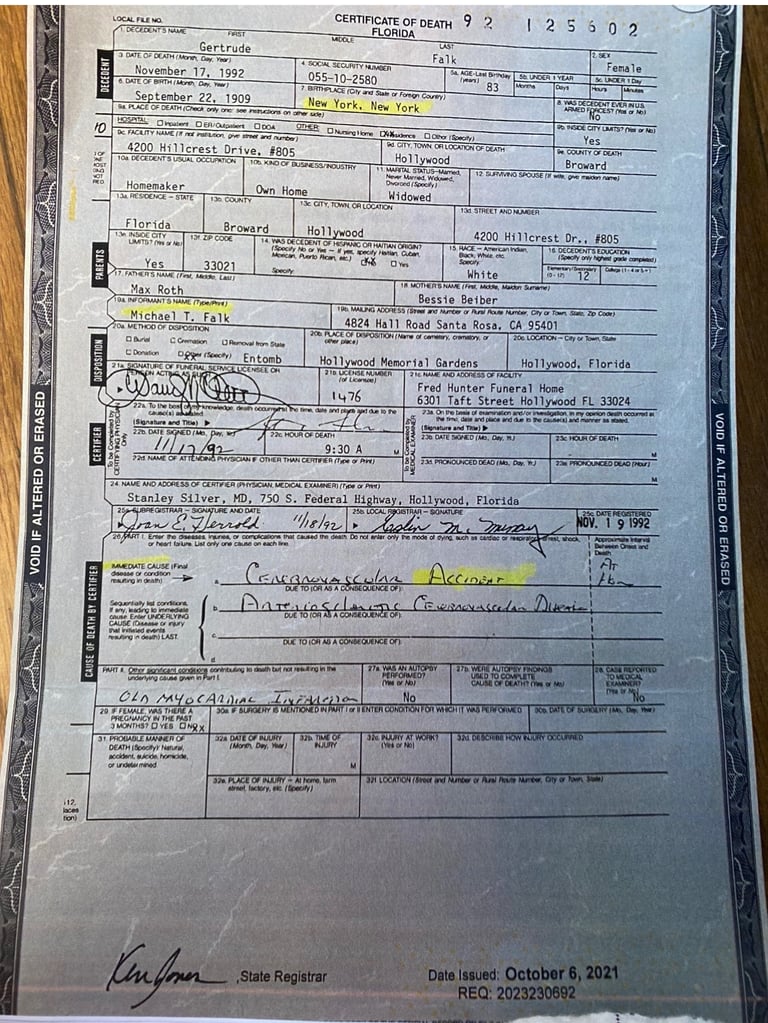 LOCAL FILE NO.
CERTIFICATE OF DEATH
FLORIDA
92 125602
1. DECEDENT'S NAME FIRST MIDDLE LAST
Gertrude Falk
2. SEX
Female
3. DATE OF DEATH (Month, Day, Year)
November 17, 1992
4. SOCIAL SECURITY NUMBER
055-10-2580
5a. AGE-Last Birthday (years)
83
5b. UNDER 1 YEAR
Months Days
5c. UNDER 1 DAY
Hours Minutes
6. DATE OF BIRTH (Month, Day, Year)
September 22, 1909
7. BIRTHPLACE (City and State or Foreign Country)
New York, New York
8. WAS DECEDENT EVER IN U.S. ARMED FORCES? (Yes or No)
No
9a. PLACE OF DEATH (Check only one: see instructions on other side)
HOSPITAL: Inpatient ER/Outpatient DOA OTHER: Nursing Home Residence Other (Specify)
9b. INSIDE CITY LIMITS? (Yes or No)
Yes
9c. FACILITY NAME (If not institution, give street and number)
4200 Hillcrest Drive, #805
9d. CITY, TOWN, OR LOCATION OF DEATH
Hollywood
9e. COUNTY OF DEATH
Broward
10a. DECEDENT'S USUAL OCCUPATION
Homemaker
10b. KIND OF BUSINESS/INDUSTRY
Own Home
11. MARITAL STATUS-Married, Never Married, Widowed, Divorced (Specify)
Widowed
12. SURVIVING SPOUSE (If wife, give maiden name)
13a. RESIDENCE - STATE
Florida
13b. COUNTY
Broward
13c. CITY, TOWN, OR LOCATION
Hollywood
13d. STREET AND NUMBER
4200 Hillcrest Dr., #805
13e. INSIDE CITY LIMITS? (Yes or No)
Yes
13f. ZIP CODE
33021
14. WAS DECEDENT OF HISPANIC OR HAITIAN ORIGIN?
(Specify No or Yes - If yes, specify Haitian, Cuban, Mexican, Puerto Rican, etc.) No Yes
Specify:
15. RACE - American Indian, Black, White, etc. Specify:
White
16. DECEDENT'S EDUCATION
(Specify only highest grade completed)
Elementary/Secondary (0-12) 12 College (1-4 or 5+)
17. FATHER'S NAME (First, Middle, Last)
Max Roth
18. MOTHER'S NAME (First, Middle, Maiden Surname)
Bessie Beiber
19a. INFORMANT'S NAME (Type/Print)
Michael T. Falk
19b. MAILING ADDRESS (Street and Number or Rural Route Number, City or Town, State, Zip Code)
4824 Hall Road Santa Rosa, CA 95401
20a. METHOD OF DISPOSITION
Burial Cremation Removal from State
Donation Other (Specify) Entomb
20b. PLACE OF DISPOSITION (Name of cemetery, crematory, or other place)
Hollywood Memorial Gardens
20c. LOCATION - City or Town, State
Hollywood, Florida
21a. SIGNATURE OF FUNERAL SERVICE LICENSEE OR PERSON ACTING AS SUCH
21b. LICENSE NUMBER (of Licensee)
1476
21c. NAME AND ADDRESS OF FACILITY
Fred Hunter Funeral Home
6301 Taft Street Hollywood FL 33024
22a. To the best of my knowledge, death occurred at the time, date and place and due to the cause(s) as stated.
(Signature and Title)
23a. On the basis of examination and/or investigation, in my opinion death occurred at the time, date and place and due to the cause(s) and manner as stated.
(Signature and Title)
22b. DATE SIGNED (Mo., Day, Yr.)
11/17/92
22c. HOUR OF DEATH
9:30 A M
23b. DATE SIGNED (Mo., Day, Yr.)
23c. HOUR OF DEATH
M
22d. NAME OF ATTENDING PHYSICIAN IF OTHER THAN CERTIFIER (Type or Print)
23d. PRONOUNCED DEAD (Mo., Day, Yr.)
23e. PRONOUNCED DEAD (Hour)
M
24. NAME AND ADDRESS OF CERTIFIER (PHYSICIAN, MEDICAL EXAMINER) (Type or Print)
Stanley Silver, MD, 750 S. Federal Highway, Hollywood, Florida
25a. SUBREGISTRAR - SIGNATURE AND DATE
Joan E. Herrold 11/18/92
25b. LOCAL REGISTRAR - SIGNATURE
25c. DATE REGISTERED
NOV. 19 1992
26. PART I. Enter the diseases, injuries, or complications that caused the death. Do not enter only the mode of dying, such as cardiac or respiratory arrest, shock, or heart failure. List only one cause on each line.
Approximate Interval Between Onset and Death
IMMEDIATE CAUSE (Final disease or condition resulting in death)
a. Cerebrovascular Accident
DUE TO (OR AS A CONSEQUENCE OF):
Sequentially list conditions, if any, leading to immediate cause. Enter UNDERLYING CAUSE (Disease or injury that initiated events resulting in death) LAST.
b. Arteriosclerotic Cerebrovascular Disease
DUE TO (OR AS A CONSEQUENCE OF):
c.
DUE TO (OR AS A CONSEQUENCE OF):
d.
PART II. Other significant conditions contributing to death but not resulting in the underlying cause given in Part I.
Old Myocardial Infarction
27a. WAS AN AUTOPSY PERFORMED? (Yes or No)
No
27b. WERE AUTOPSY FINDINGS USED TO COMPLETE CAUSE OF DEATH? (Yes or No)
28. CASE REPORTED TO MEDICAL EXAMINER? (Yes or No)
No
29. IF FEMALE, WAS THERE A PREGNANCY IN THE PAST 3 MONTHS? YES NO
30a. IF SURGERY IS MENTIONED IN PART I or II ENTER CONDITION FOR WHICH IT WAS PERFORMED
30b. DATE OF SURGERY (Mo., Day, Year)
31. PROBABLE MANNER OF DEATH (Specify): Natural, accident, suicide, homicide, or undetermined.
32a. DATE OF INJURY (Month, Day, Year)
32b. TIME OF INJURY
M
32c. INJURY AT WORK? (Yes or No)
32d. DESCRIBE HOW INJURY OCCURRED
32e. PLACE OF INJURY - At home, farm street, factory, etc. (Specify)
32f. LOCATION (Street and Number or Rural Route Number, City or Town, State)
DECEDENT
PARENTS
DISPOSITION
CERTIFIER
To be Completed by CERTIFYING PHYSICIAN Only
To be Completed by MEDICAL EXAMINER
CAUSE OF DEATH BY CERTIFIER
VOID IF ALTERED OR ERASED
VOID IF ALTERED OR ERASED
Ken Jones, State Registrar
Date Issued: October 6, 2021
REQ: 2023230692